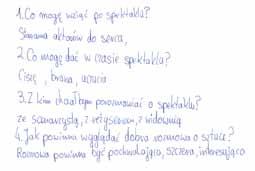 1. Co mogę wziąć po spektaklu?
Starania aktorów do serca,
2. Co mogę dać w czasie spektaklu?
Ciszę, brawa, uczucia
3. Z kim chciałbym porozmawiać o spektaklu?
ze scenarzystą, z reżyserem, z widownią
4. Jak powinna wyglądać dobra rozmowa o sztuce?
Rozmowa powinna być pochwalająca, szczera, interesująca